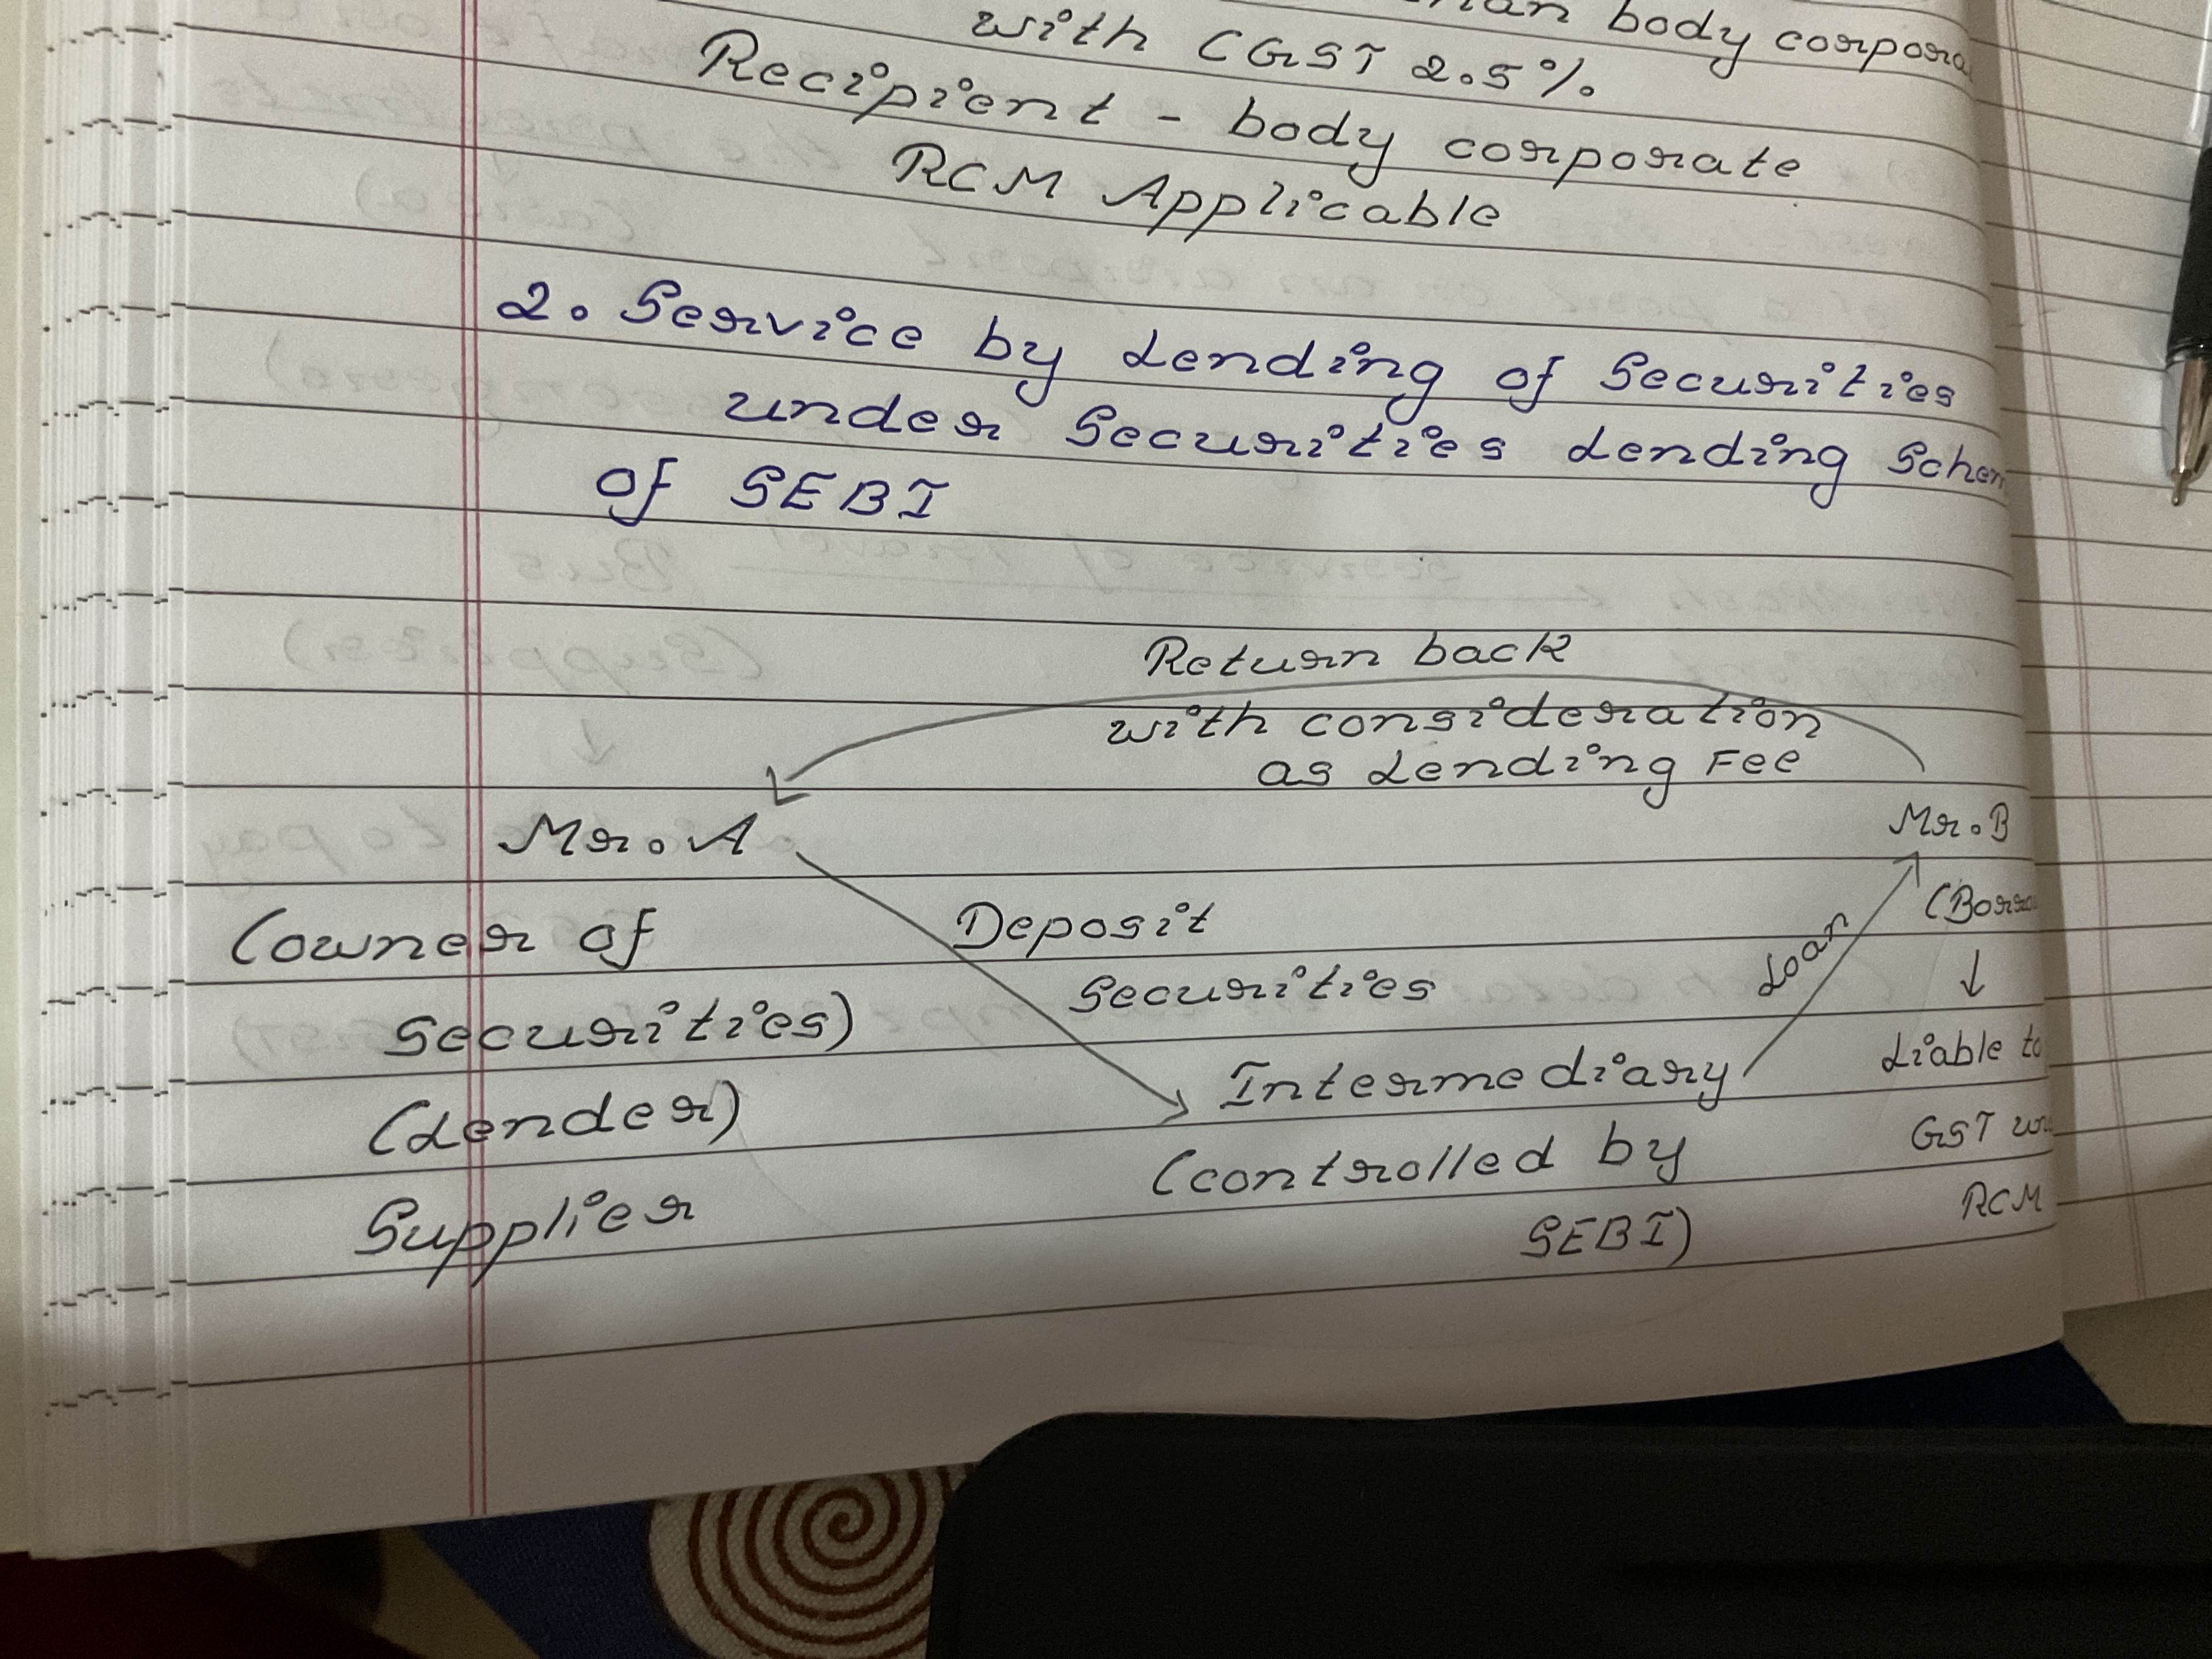 body
with CGST 2.5%.
Recipient - body corporate
RCM Applicable
2. Service by Lending of Securities
under Securities Lending
of SEBI
Return back
with consideration
as Lending Fee
Mr. A
Mr. B
(owner of
Deposit
Loan
Securities)
Securities
(Lender)
Intermediary
Liable to
Supplier
(controlled by
GST
SEBI)
RCM